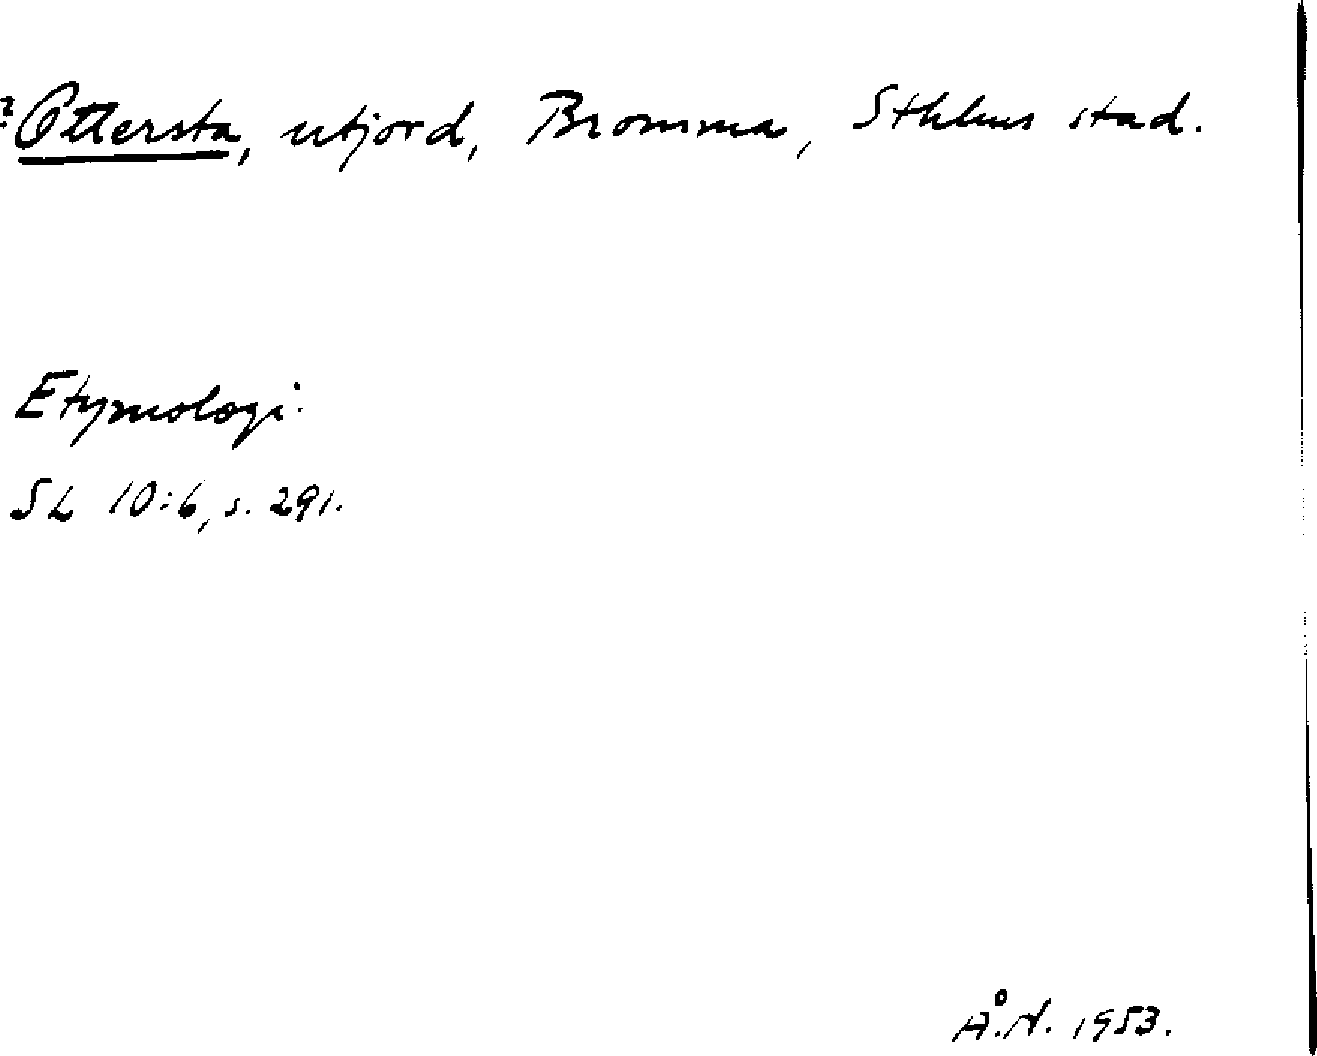 Ottersta, utjord, Bromma, Sthlms stad.
Etymologi.
SL 10:6, s. 291.
Å.N. 1953.